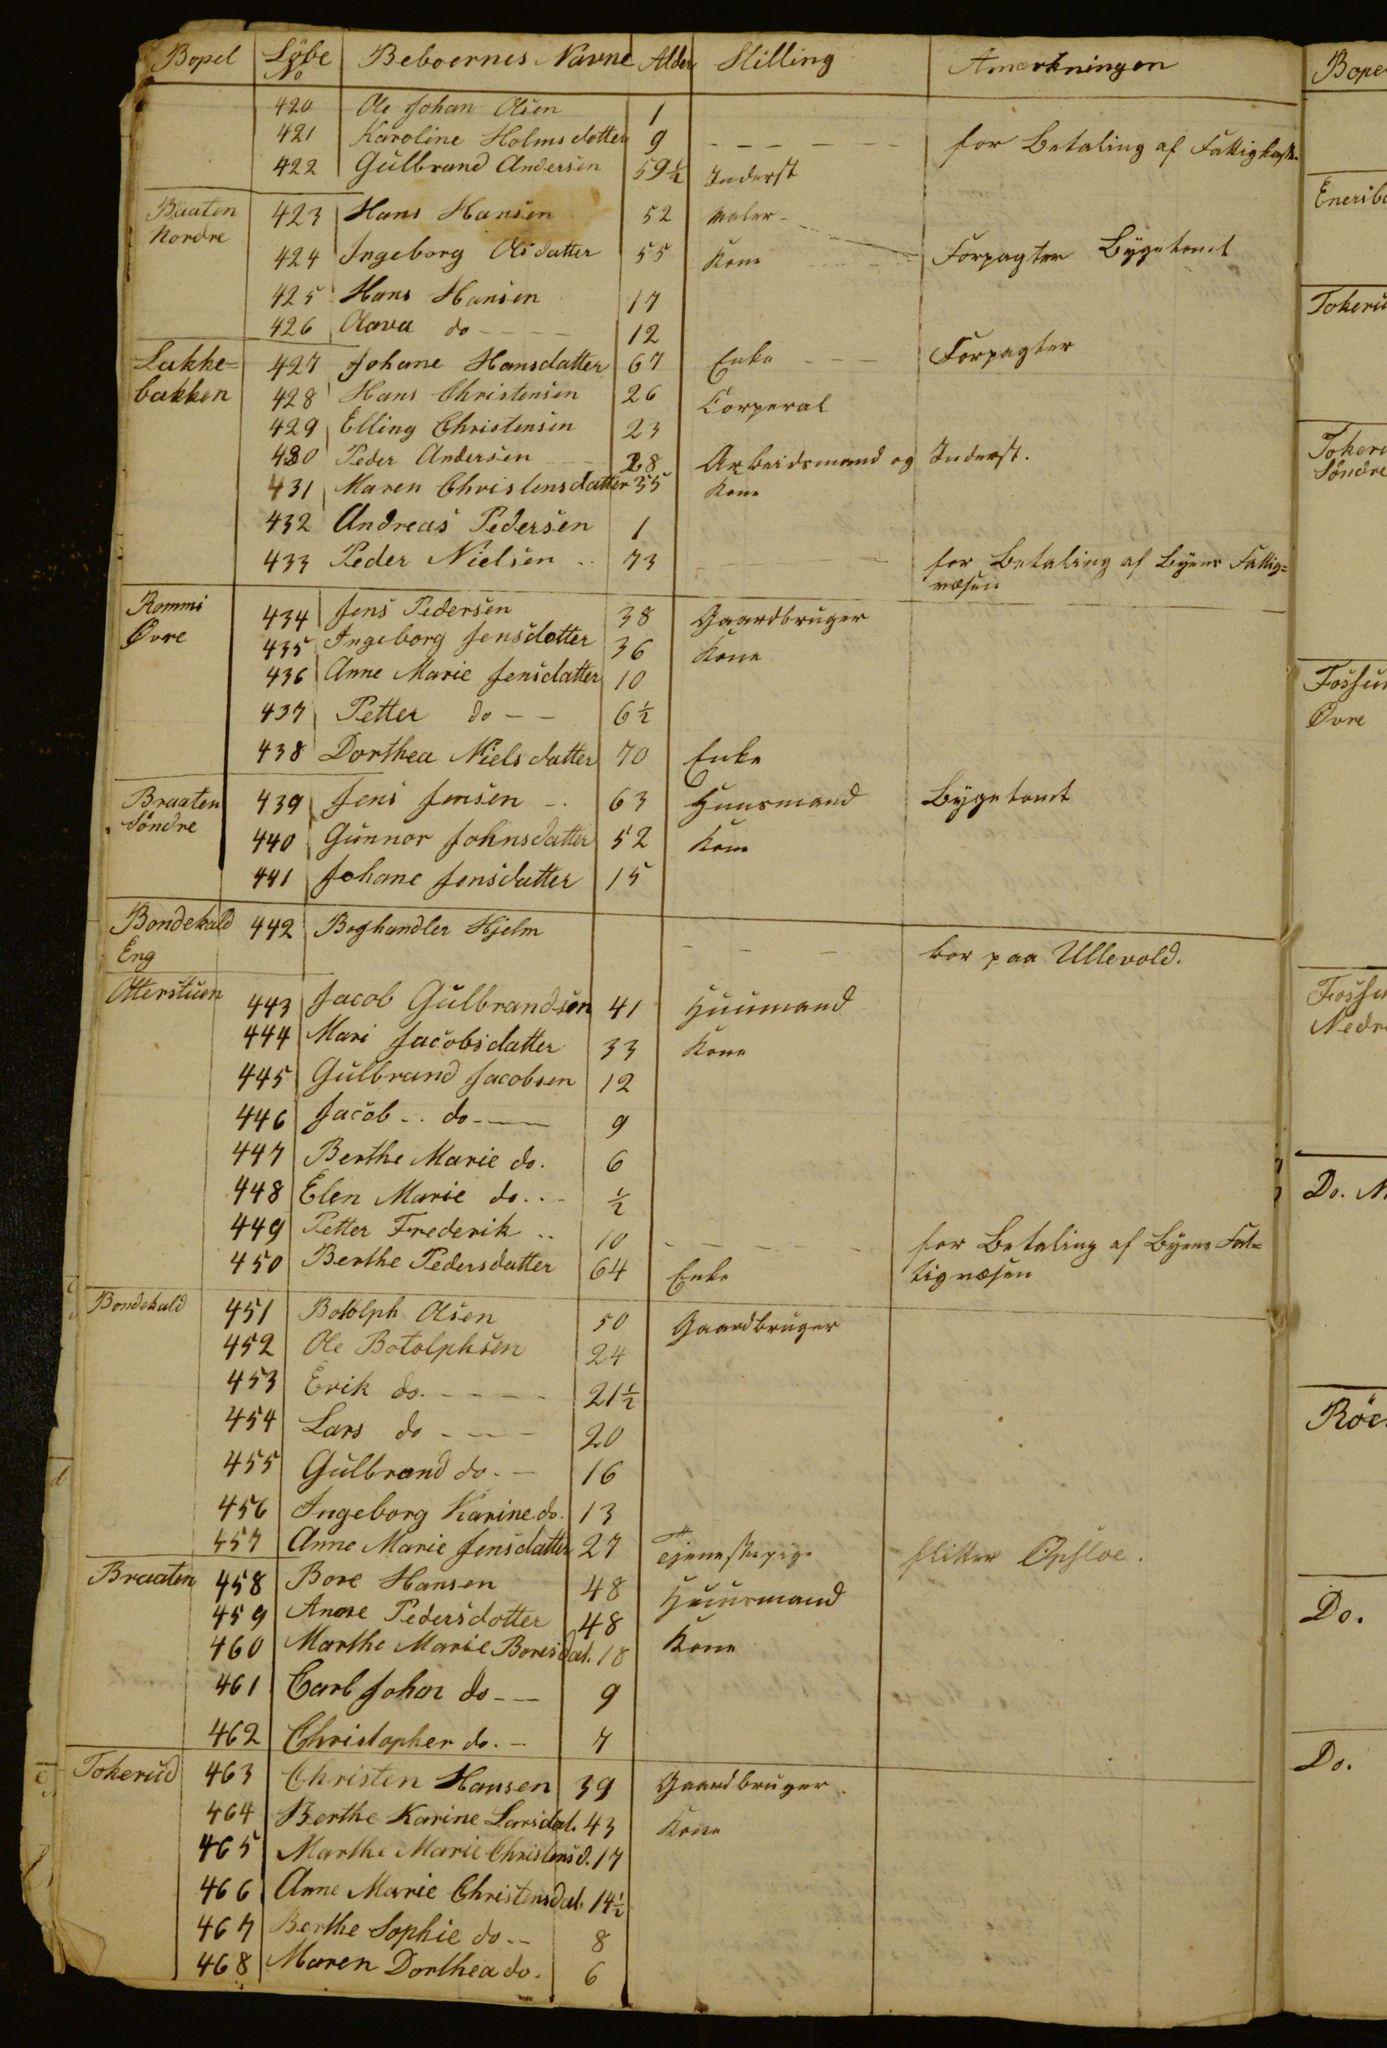 Bopel Löbe No Beboernes Navne Alder Stilling Anmærkningen
420 Ole Johan Olsen 1
421 Karoline Holmsdatter 9 - - - - - - for Betaling af Fattigkass.
422 Gulbrand Andersen 59½ Inderst
Braaten 423 Hans Hansen 52 Maler -
Nordre 424 Ingeborg Olsdatter 55 Kone Forpagter Bygetomt
425 Hans Hansen 17
426 Olava do - - - - 12
Lakke= 427 Johane Hansdatter 67 Enke - - - Forpagter
bakken 428 Hans Christensen 26 Corperal
429 Elling Christensen 23
430 Peder Andersen - - - 28 Arbeidsmand og Inderst.
431 Maren Christensdatter 35 Kone
432 Andreas Pedersen 1
433 Peder Nielsen .. 73 - - - - for Betaling af Byens Fattig=
væsen
Rommi 434 Jens Pedersen 38 Gaardbruger
Øvre 435 Ingeborg Jensdatter 36 Kone
436 Anne Marie Jensdatter 10
437 Petter do - - 6½
438 Dorthea Nielsdatter 70 Enke
Braaten 439 Jens Jensen - . 63 Huusmand Bygetomt
Söndre 440 Gunnor Johnsdatter 52 Kone
441 Johane Jensdatter 15
Bondekald 442 Boghandler Hjelm - - - bor paa Ullevold.
Eng
Otterstuen 443 Jacob Gulbrandsen 41 Huumand
444 Mari Jacobsdatter 33 Kone
445 Gulbrand Jacobsen 12
446 Jacob - . do - — 9
447 Berthe Marie do. 6
448 Elen Marie do. . - ½
449 Petter Frederik .. 10 - - - - - for Betaling af Byens Fat=
450 Berthe Pedersdatter 64 Enke tigvæsen
Bondekald 451 Botolph Olsen 50 Gaardbruger
452 Ole Botolphsen 24
453 Erik do. - - - - 21½
454 Lars do - - - 20
455 Gulbrand do. - 16
456 Ingeborg Karine do. 13
457 Anne Marie Jensdatter 27 Tjenestepige flitter Opsloe.
Braaten 458 Bore Hansen 48 Huusmand
459 Anne Pedersdotter 48
460 Marthe Marie Boresdat. 18 Kone
461 Carl Johan do - — 9
462 Christopher do. - 7
Tokerud 463 Christen Hansen 39 Gaardbruger
464 Berthe Karine Larsdat. 43 Kone
465 Marthe Marie Christensd. 17
466 Anne Marie Christensdat. 14½
467 Berthe Sophie do - - 8
468 Maren Dorthea do. 6
Tokeru
Söndre
Øvre
Do.
Do.